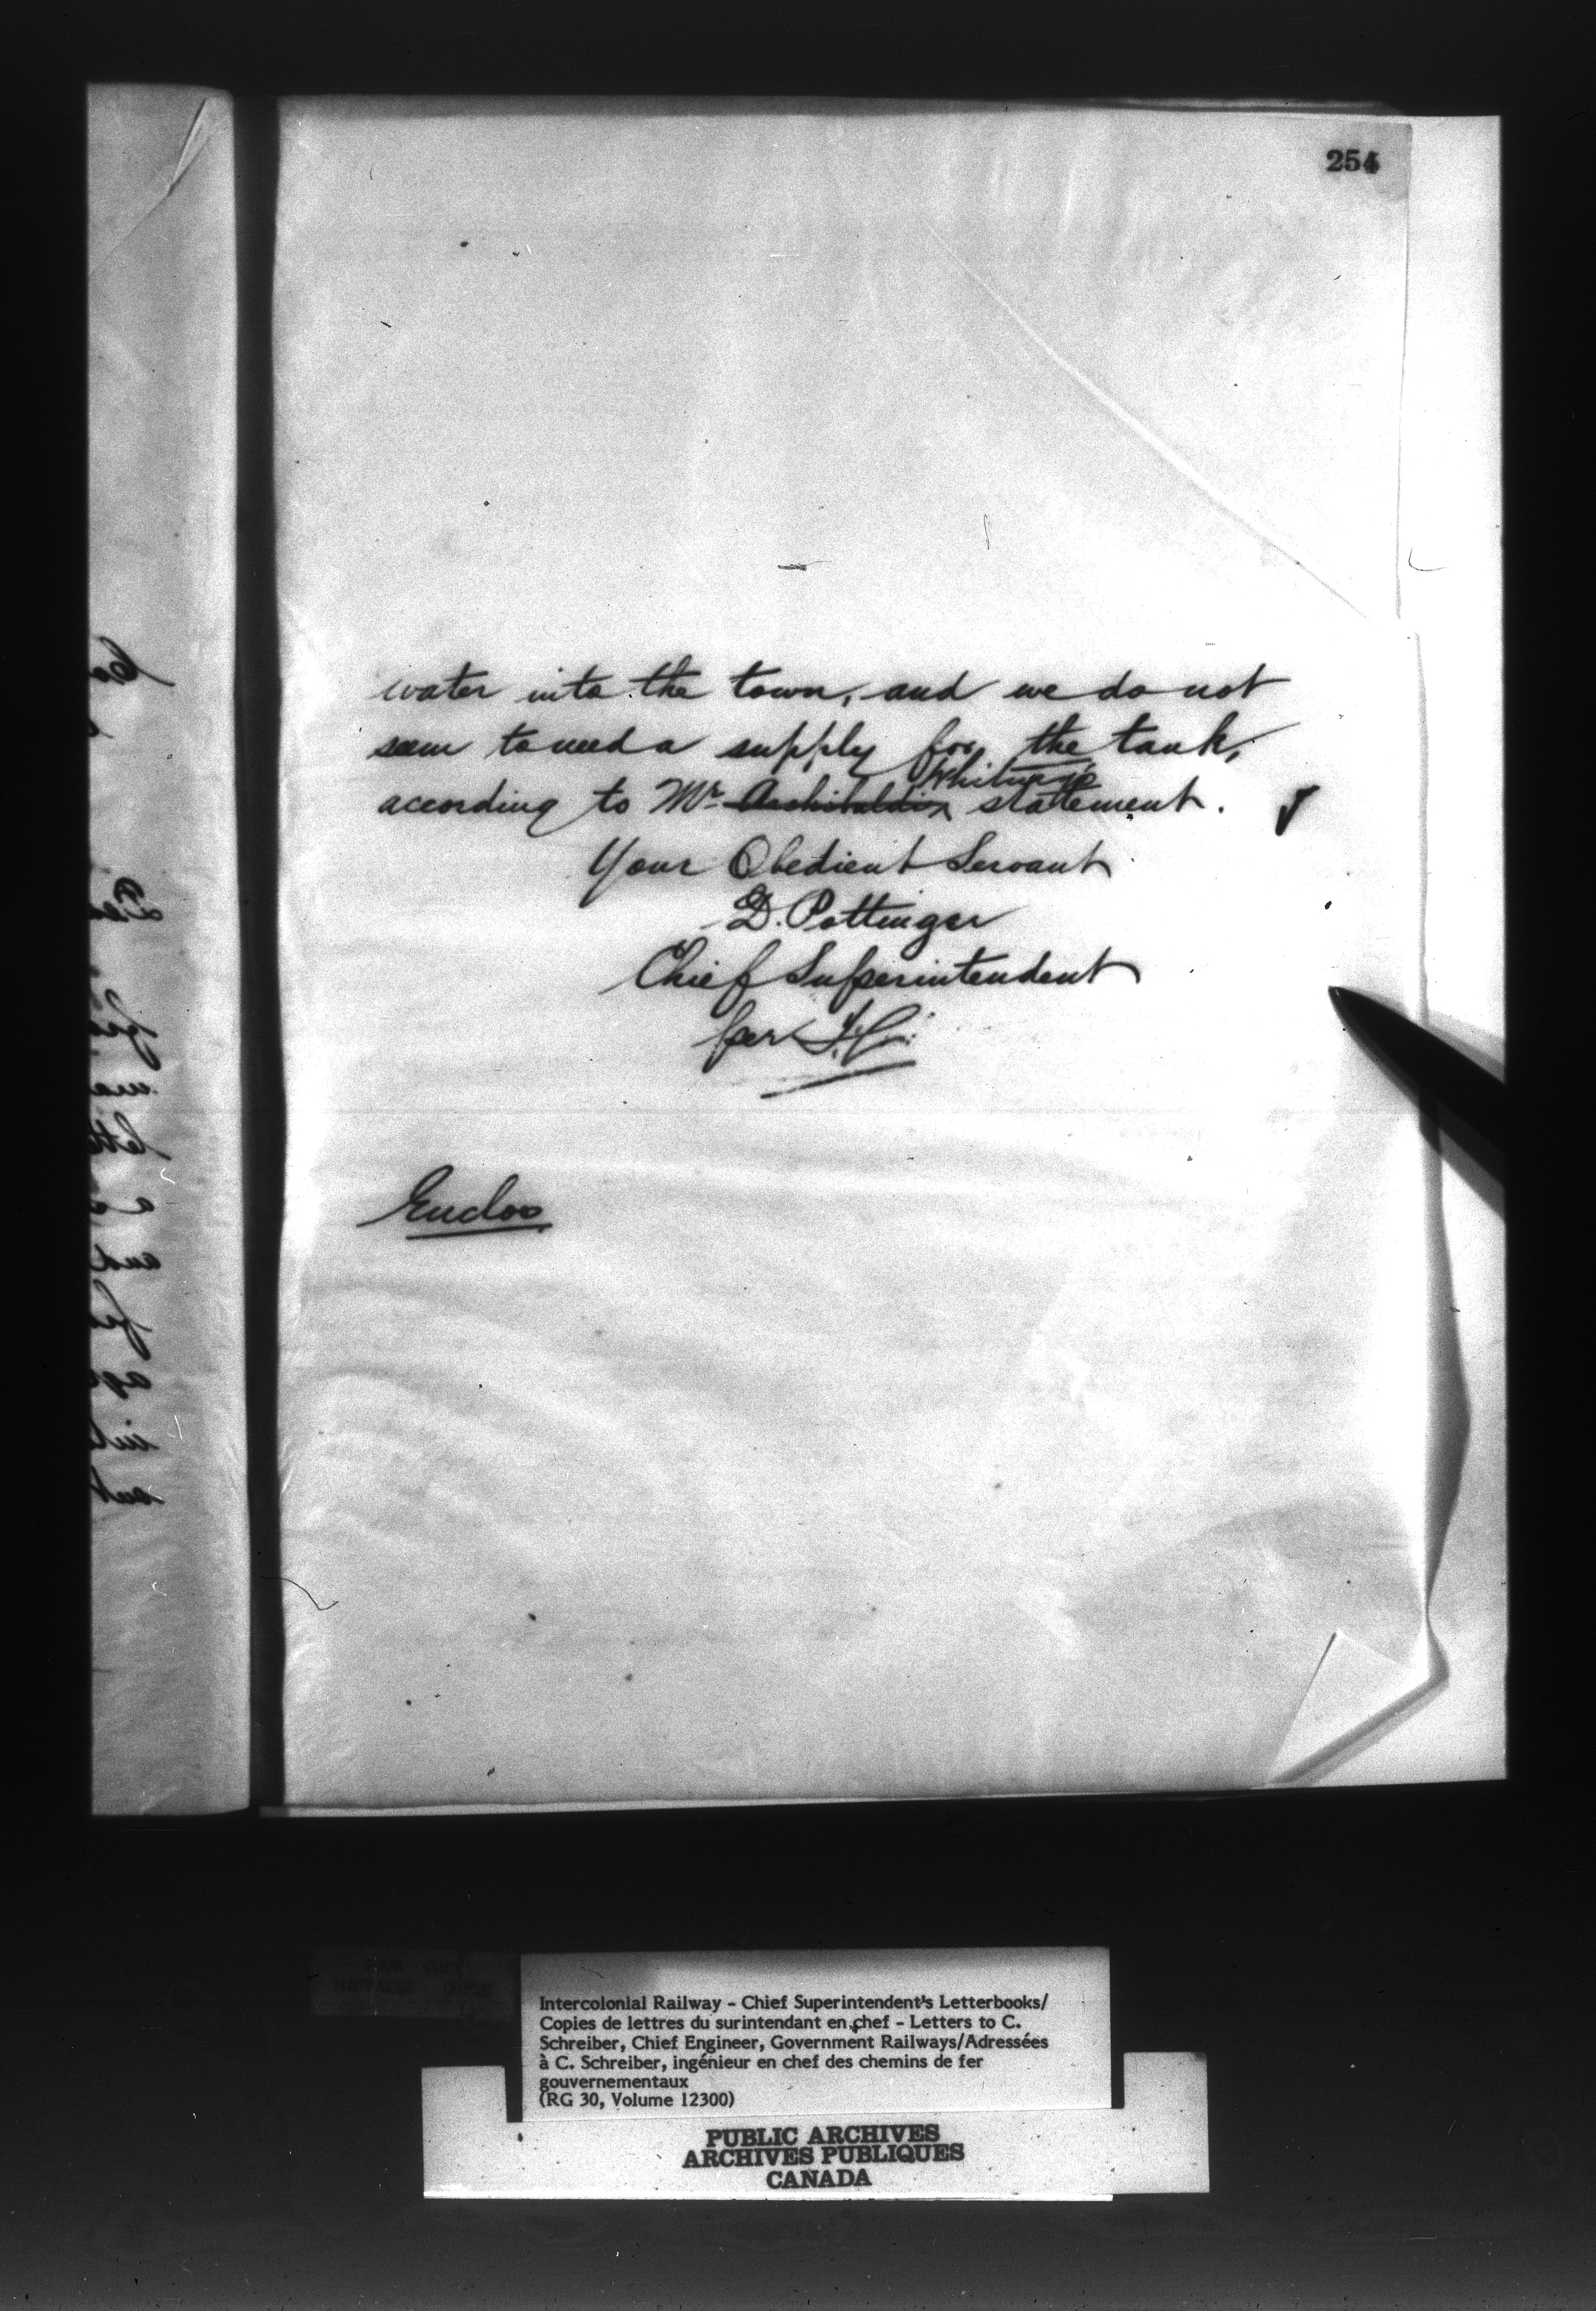 254
water into the town, and we do not
seem to need a supply for the tank,
Whitney's
according to Mr Archibald's statement.
Your Obedient Servant
D. Pottinger
Chief Superintendent
per
Enclos
Intercolonial Railway - Chief Superintendent's Letterbooks/
Copies de lettres du surintendant en chef - Letters to C.
Schreiber, Chief Engineer, Government Railways/Adressées
à C. Schreiber, ingénieur en chef des chemins de fer
gouvernementaux
(RG 30, Volume 12300)
PUBLIC ARCHIVES
ARCHIVES PUBLIQUES
CANADA